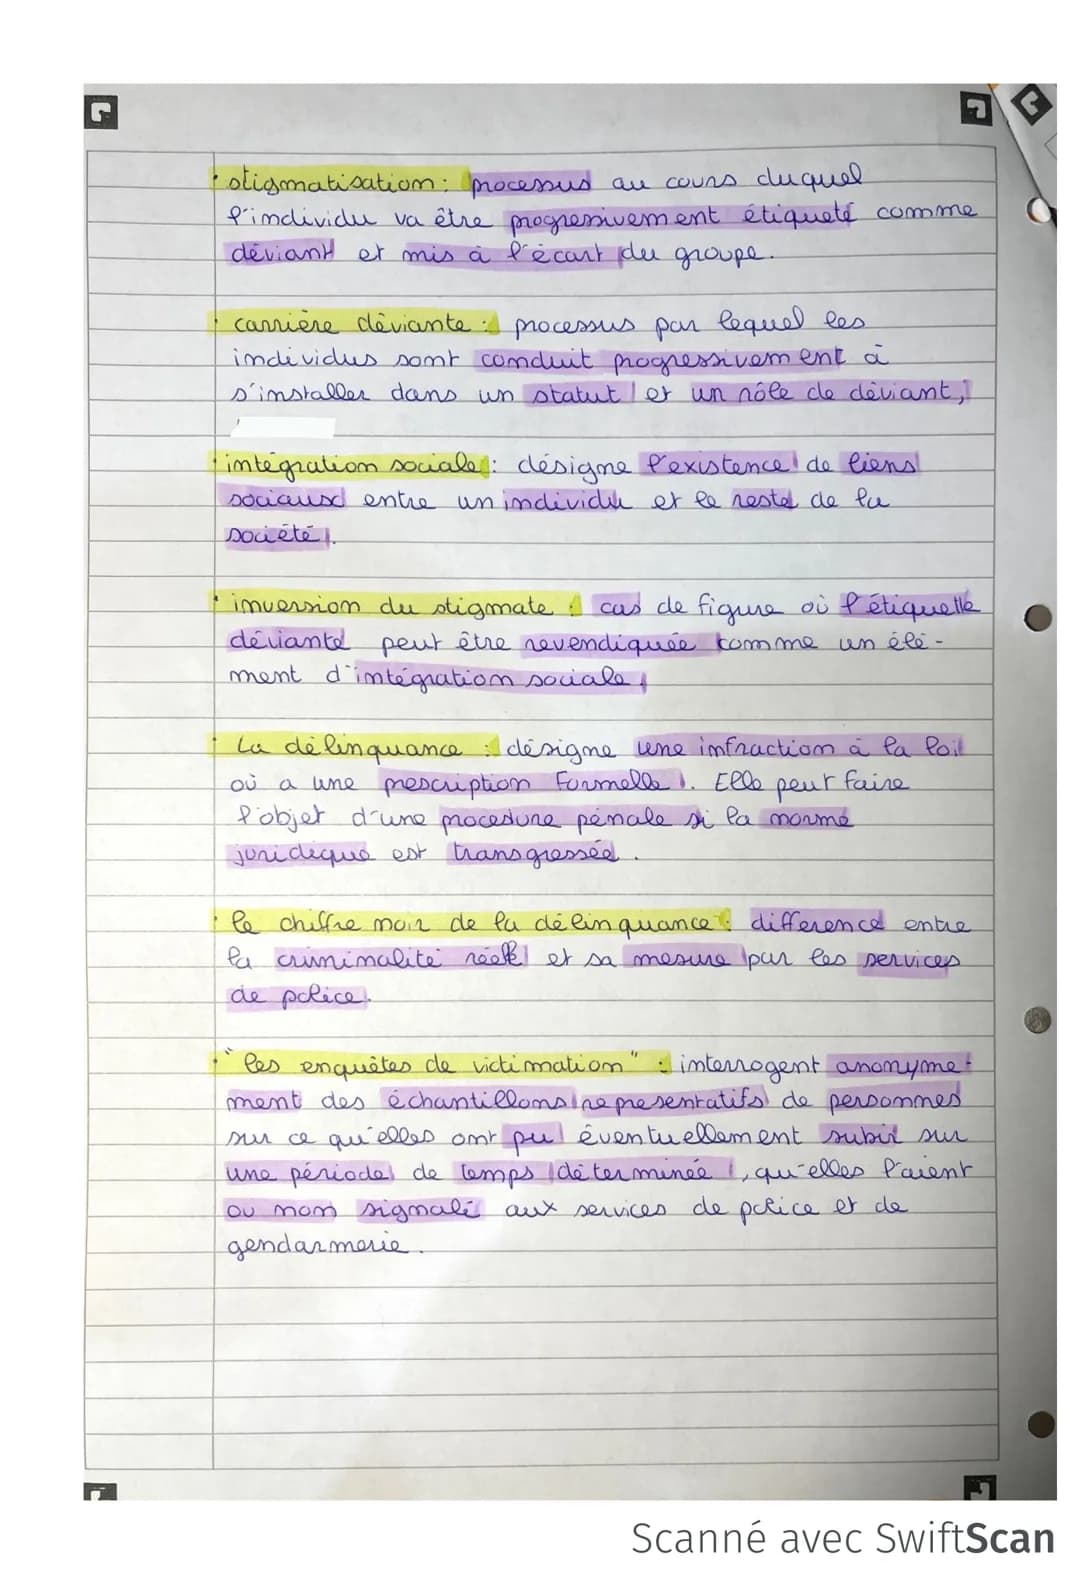 · stigmatisation : processus au cours duquel
l'individu va être progressivement étiqueté comme
déviant et mis à l'écart du groupe.
· carrière déviante : processus par lequel les
individus sont conduit progressivement à
s'installer dans un statut et un rôle de déviant,
· intégration sociale : désigne l'existence de liens
sociaux entre un individu et le reste de la
société.
· inversion du stigmate : cas de figure où l'étiquette
déviante peut être revendiquée comme un élé-
ment d'intégration sociale.
· La délinquance : désigne une infraction à la loi
où a une prescription formelle. Elle peut faire
l'objet d'une procédure pénale si la norme
juridique est transgressée.
· le chiffre noir de la délinquance : différence entre
la criminalité réelle et sa mesure par les services
de police.
· "les enquêtes de victimation" : interrogent anonyme-
ment des échantillons représentatifs de personnes
sur ce qu'elles ont pu éventuellement subir sur
une période de temps déterminée, qu'elles l'aient
ou non signalé aux services de police et de
gendarmerie.
Scanné avec SwiftScan